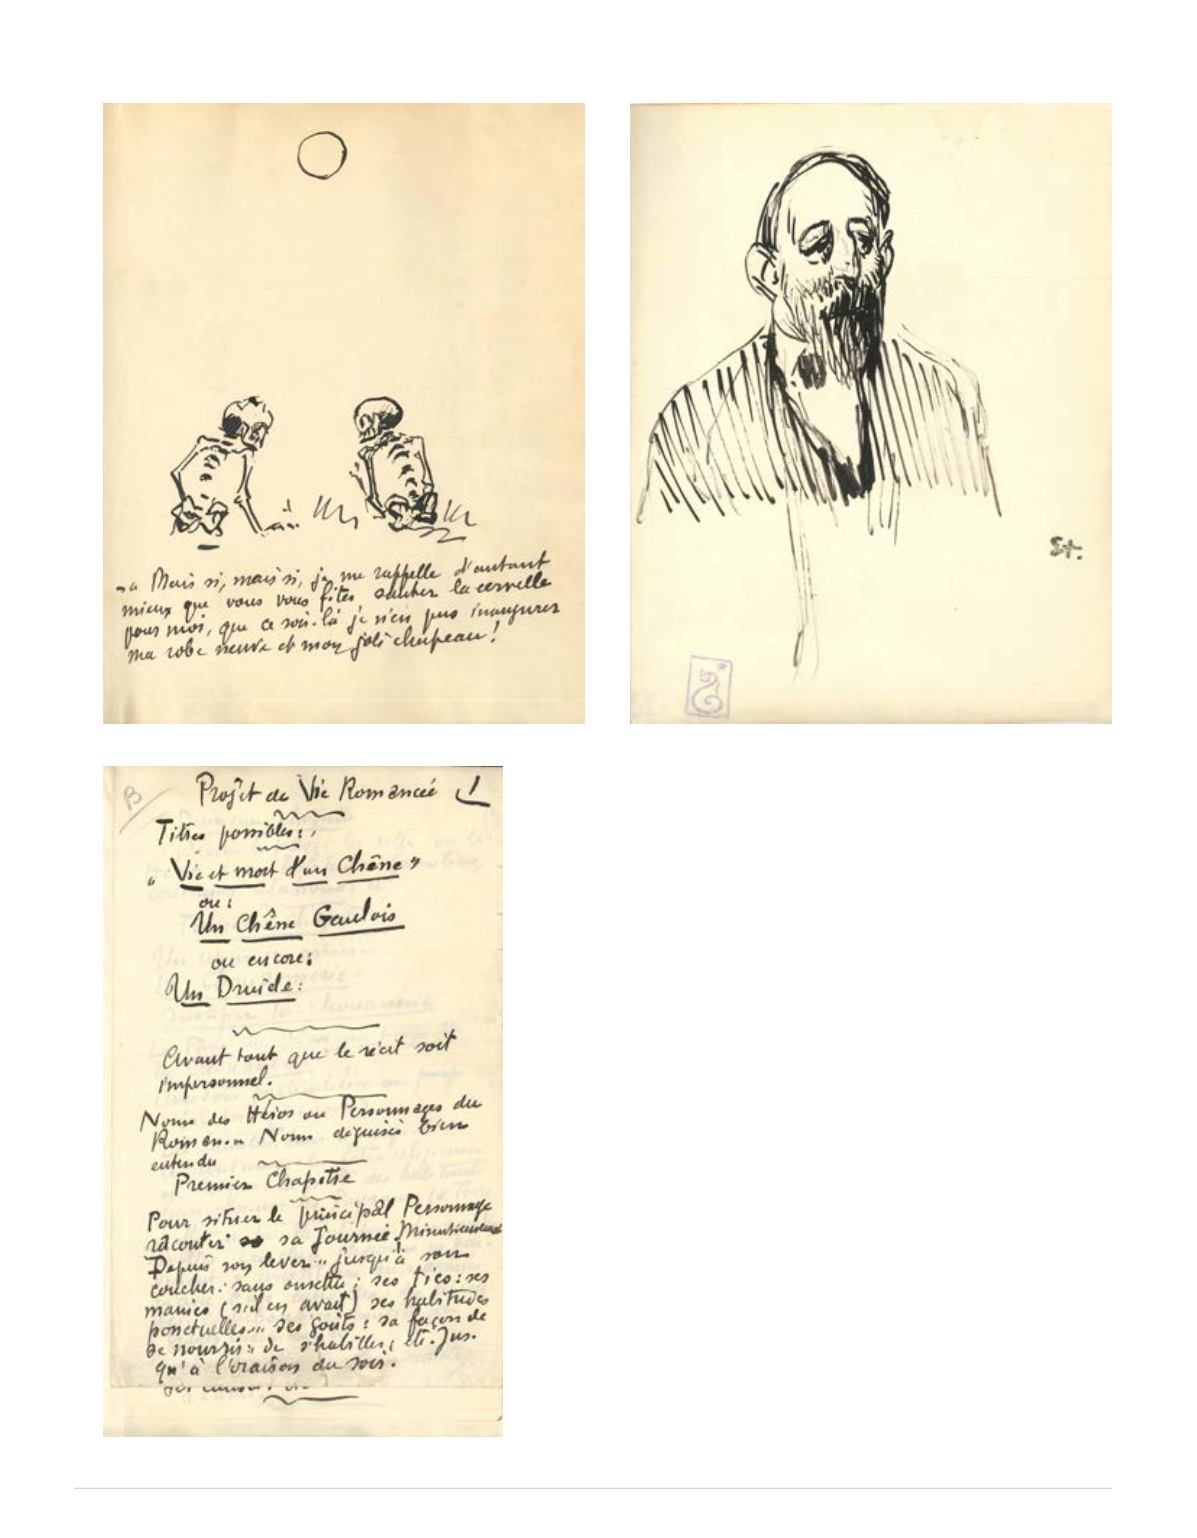 « Mais si, mais si, je me rappelle d'autant
mieux que vous vous fîtes sauter la cervelle
pour moi, que ce soir-là je n'en pus inaugurer
ma robe neuve et mon joli chapeau !
St.
B
Projet de Vie Romancée 1
Titres possibles :
"Vie et mort d'un Chêne"
ou :
Un Chêne Gaulois
ou encore :
Un Druide :
Avant tout que le récit soit
impersonnel.
Noms des Héros ou Personnages du
Roman.. Noms déguisés bien
entendu
Premier Chapitre
Pour situer le principal Personnage
raconter sa Journée
Depuis son lever... jusqu'à son
coucher : sans omettre ; ses tics : ses
manies (s'il en avait) ses habitudes
ponctuelles... ses goûts : sa façon de
se nourrir : de s'habiller ; etc. Jus-
qu'à l'oraison du soir.